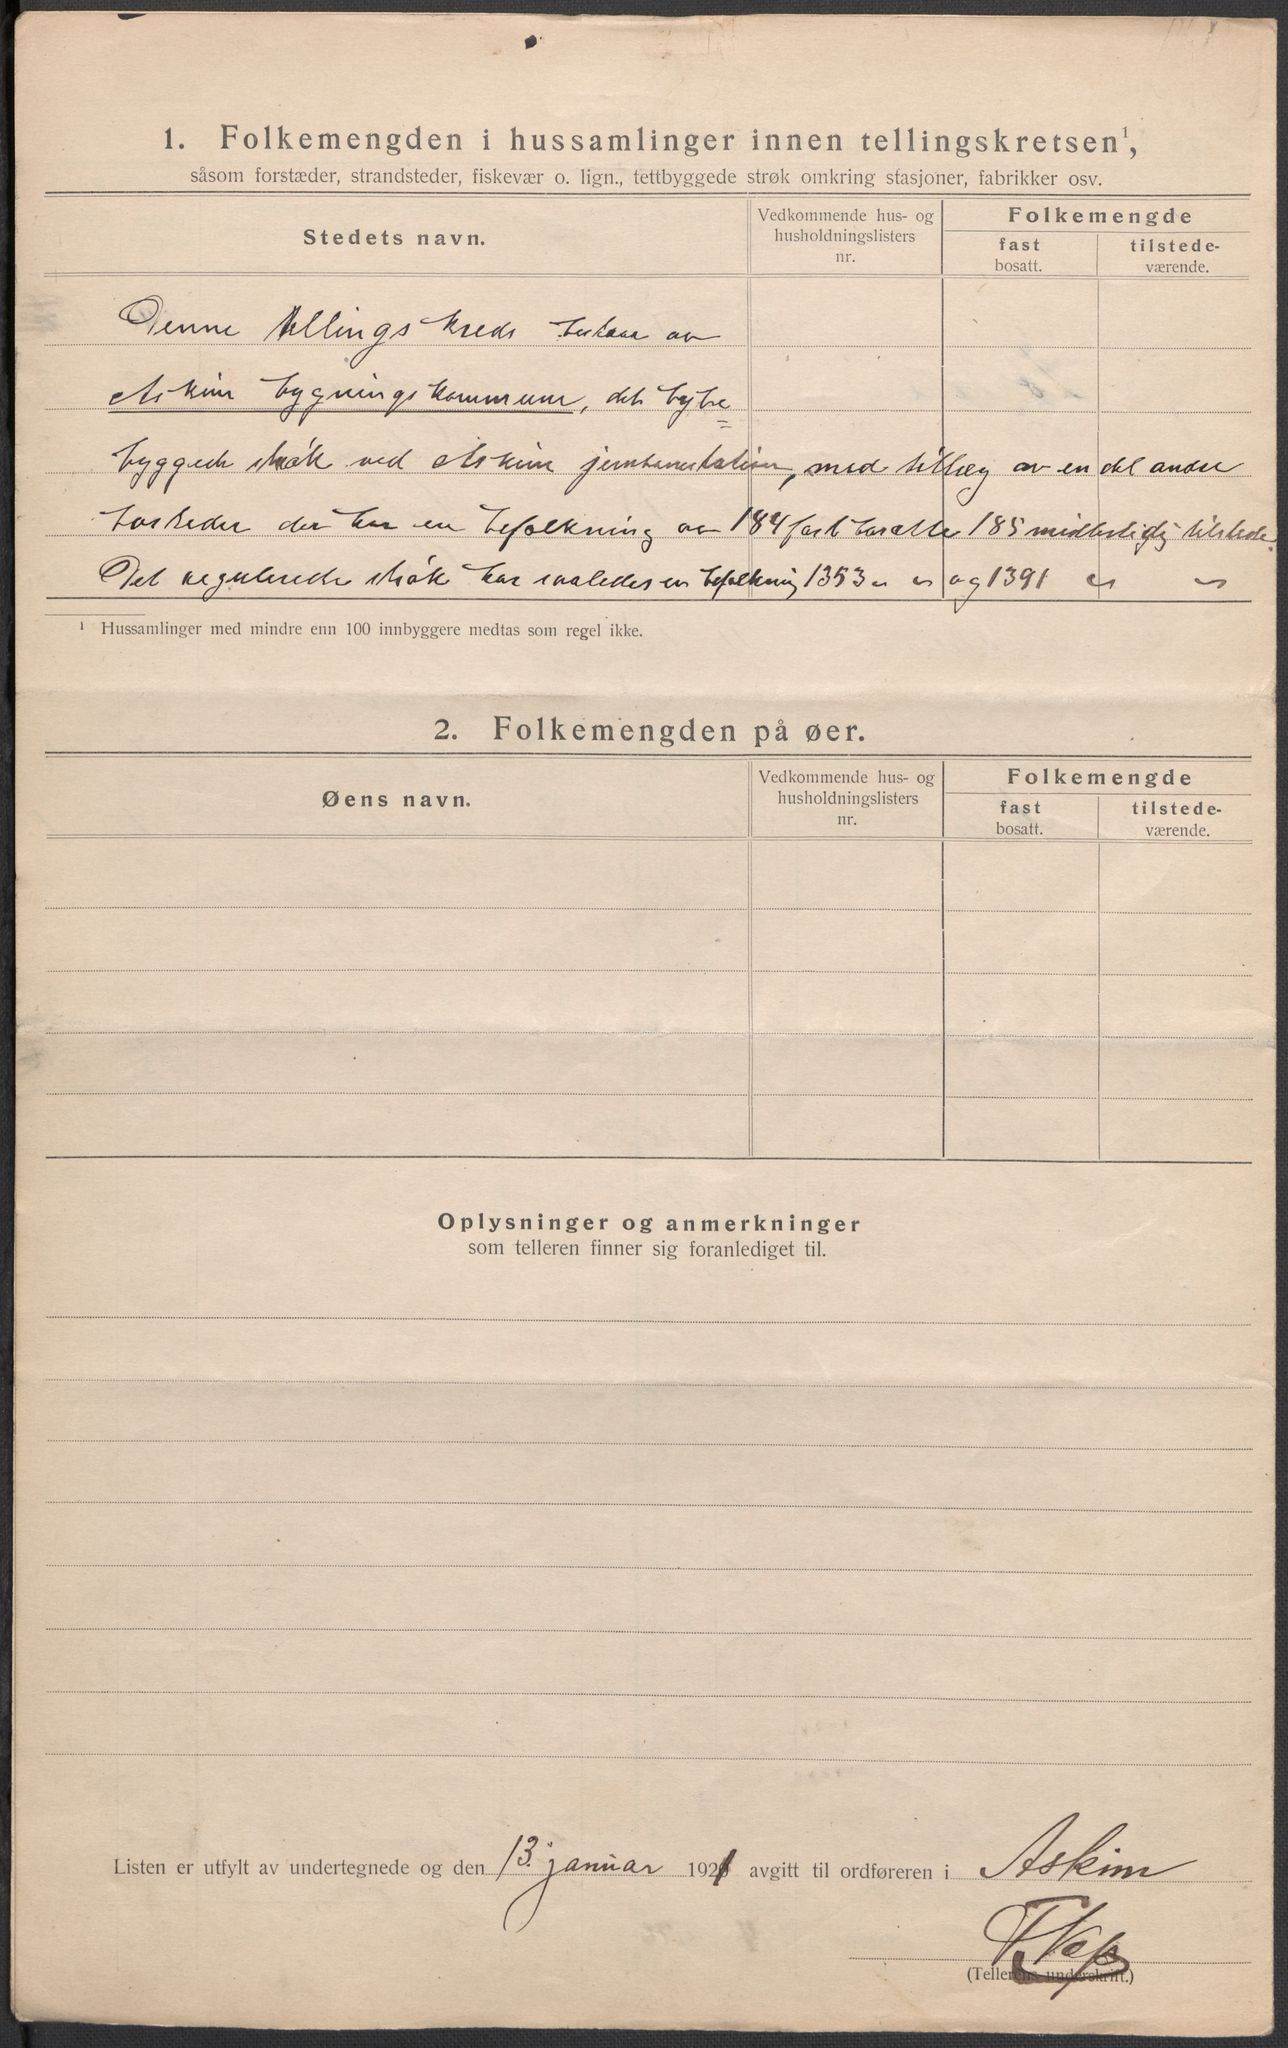 1. Folkemengden i hussamlinger innen tellingskretsen¹,
såsom forstæder, strandsteder, fiskevær o. lign., tettbyggede strøk omkring stasjoner, fabrikker osv.
Stedets navn.
Vedkommende hus- og
husholdningslisters
nr.
Folkemengde
fast
bosatt.
tilstede-
værende.
Denne tellingskreds bestaar av
Askim bygningskommune, det bybe
byggede strøk ved Askim jernbanestation, med tillæg av en del andre
bosteder der har en befolkning av 184 fast bosatte 185 midlertidig tilstede.
Det regulerede strøk har saaledes en befolkning 1353 " " og 1391 " "
¹ Hussamlinger med mindre enn 100 innbyggere medtas som regel ikke.
2. Folkemengden på øer.
Øens navn.
Vedkommende hus- og
husholdningslisters
nr.
Folkemengde
fast
bosatt.
tilstede-
værende.
Oplysninger og anmerkninger
som telleren finner sig foranlediget til.
Listen er utfylt av undertegnede og den 13. januar 1921 avgitt til ordføreren i Askim
(Tellerens underskrift.)